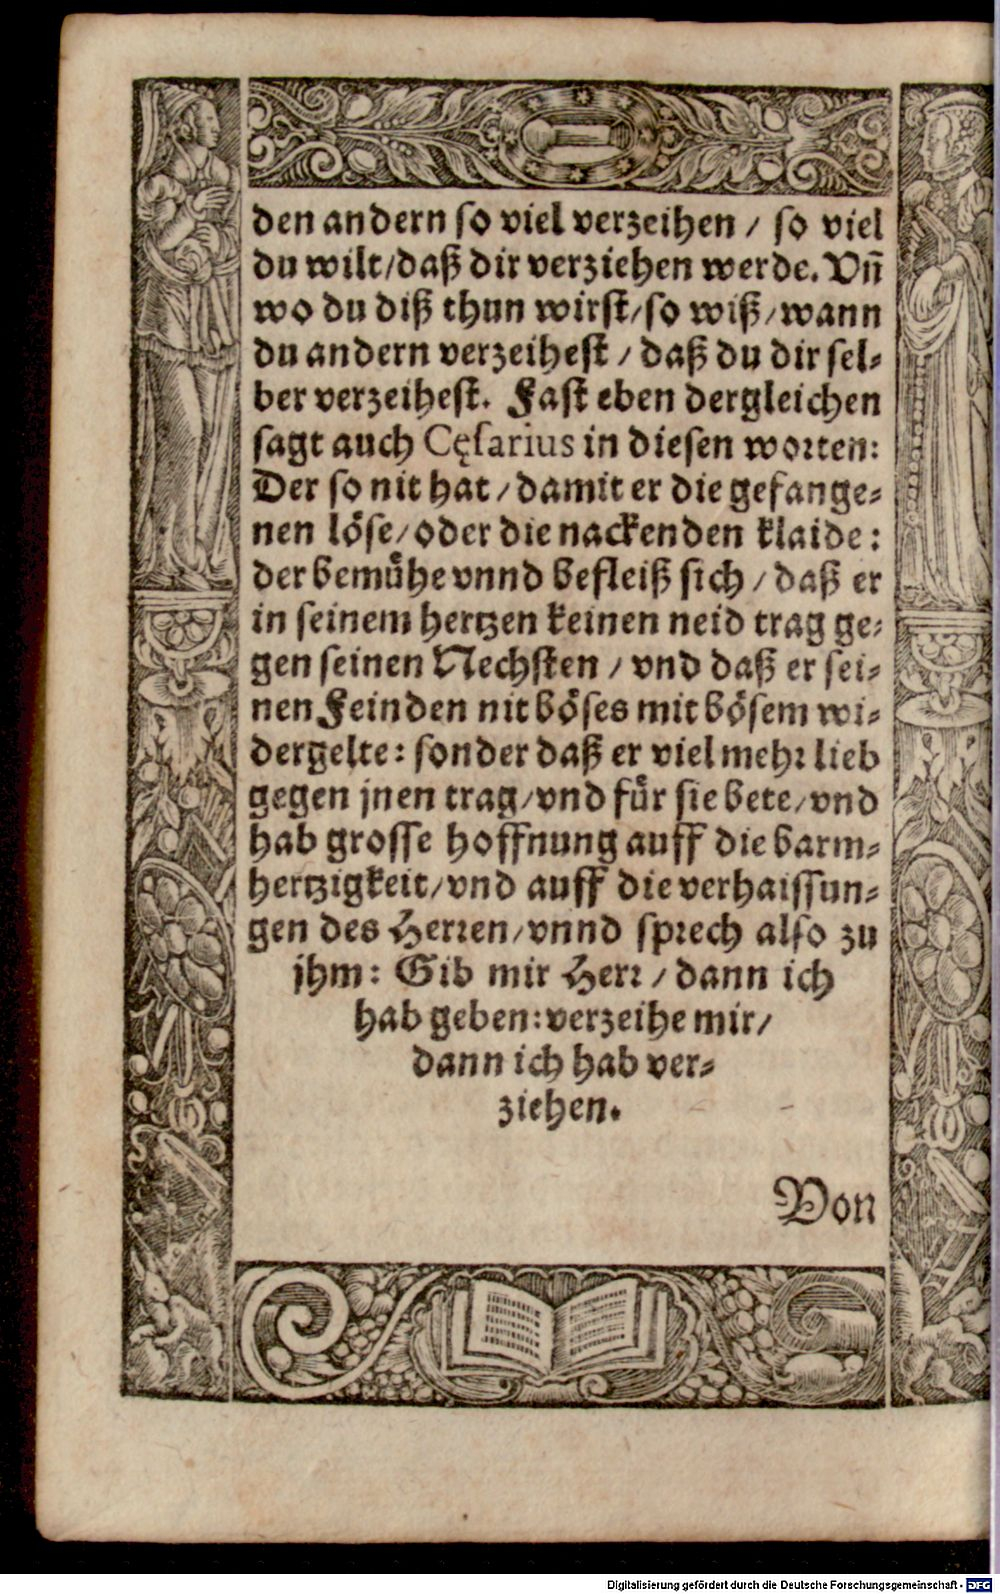 den andern so viel verzeihen / so viel
du wilt/daß dir verziehen werde. Vñ
wo du diß thun wirst/so wiß/wann
du andern verzeihest / daß du dir sel-
ber verzeihest. Fast eben dergleichen
sagt auch Cęsarius in diesen worten:
Der so nit hat / damit er die gefange-
nen löse/oder die nackenden klaide:
der bemühe vnnd befleiß sich / daß er
in seinem hertzen keinen neid trag ge-
gen seinen Nechsten / vnd daß er sei-
nen Feinden nit böses mit bösem wi-
dergelte: sonder daß er viel mehr lieb
gegen jnen trag/vnd für sie bete/vnd
hab grosse hoffnung auff die barm-
hertzigkeit/vnd auff die verhaissun-
gen des Herren/vnnd sprech also zu
jhm: Gib mir Herr / dann ich
hab geben: verzeihe mir/
dann ich hab ver-
ziehen.
Von
Digitalisierung gefördert durch die Deutsche Forschungsgemeinschaft - DFG